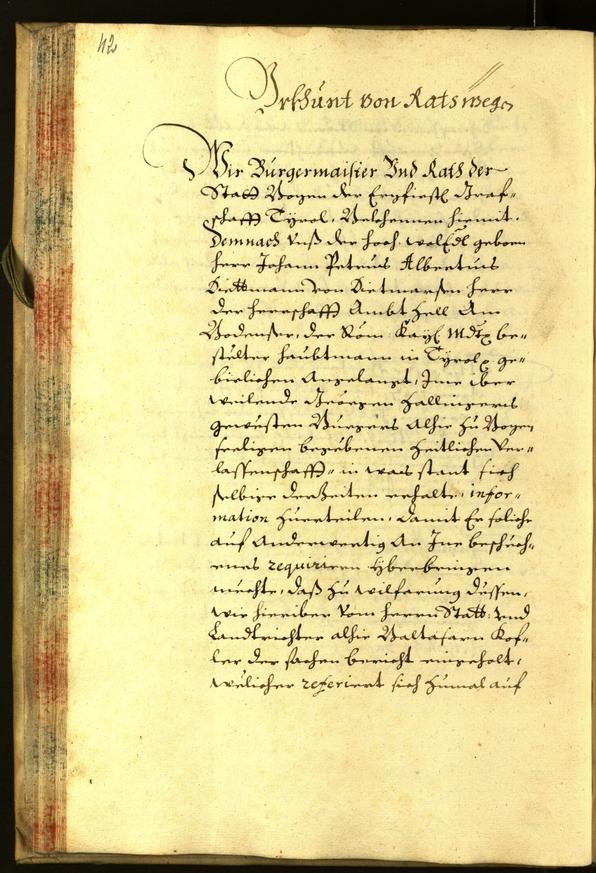 42
Urkhunt von Rats wegen
Wir Burgermaister Vnd Rath der
Statt Bozen der Erzfirstl Graf-
schafft Tyrol, Bekhennen hiemit.
Demnach Vnß der hoch wolEdl geborn
herr Johann Petrus Albertus
Diettman von Dietmarsen herr
der herrschafft Ambt Zell Am
Bodenser, der Röm Kayl Mtt be-
stölter haubtmann in Tyrol ge-
bierlichen Angelangt, Ime iber
weilende Georgen Hallingers
gewesten Burgers Alhie zu Bozen
seeligen begebenen Zeitlichen Ver-
lassenschafft, in was stant sich
selbige derzeiten erhalte, infor-
mation zuerteilen, damit Er soliche
auf Anderwertig An Ine beschech-
enes requiriren Yberbringen
mechte, daß zu wilfarung dessen,
wir hieriber vom herrn Statt vnd
Landtrichter alhie Baltasarn Kof-
ler der sachen bericht eingeholt,
wölicher referiert sich zumal auf